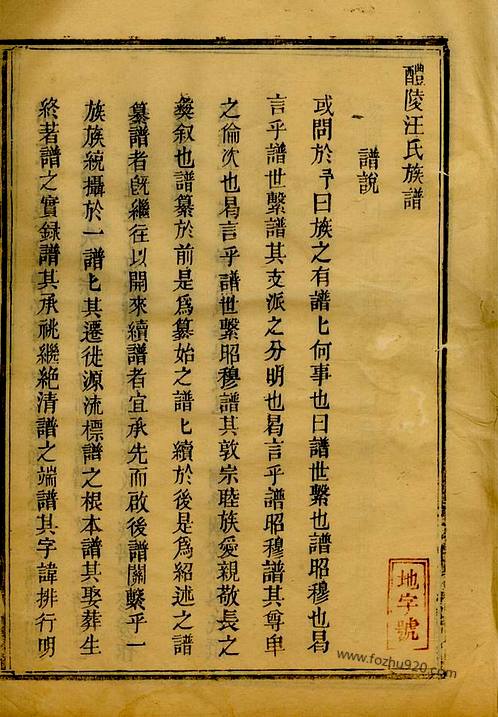 醴陵汪氏族譜
譜說
或問於予曰族之有譜匕何事也曰譜世繫也譜昭穆也曷
言乎譜世繫譜其支派之分明也曷言乎譜昭穆譜其尊卑
之倫次也曷言乎譜世繫昭穆譜其敦宗睦族愛親敬長之
彝叙也譜纂於前是為纂始之譜匕續於後是為紹述之譜
纂譜者旣繼往以開來續譜者宜承先而啟後譜關繫乎一
族族統攝於一譜匕其遷徙源流標譜之根本譜其娶葬生
終著譜之實録譜其承祧繼絕清譜之端譜其字諱排行明
地字號
www.fozhu920.com